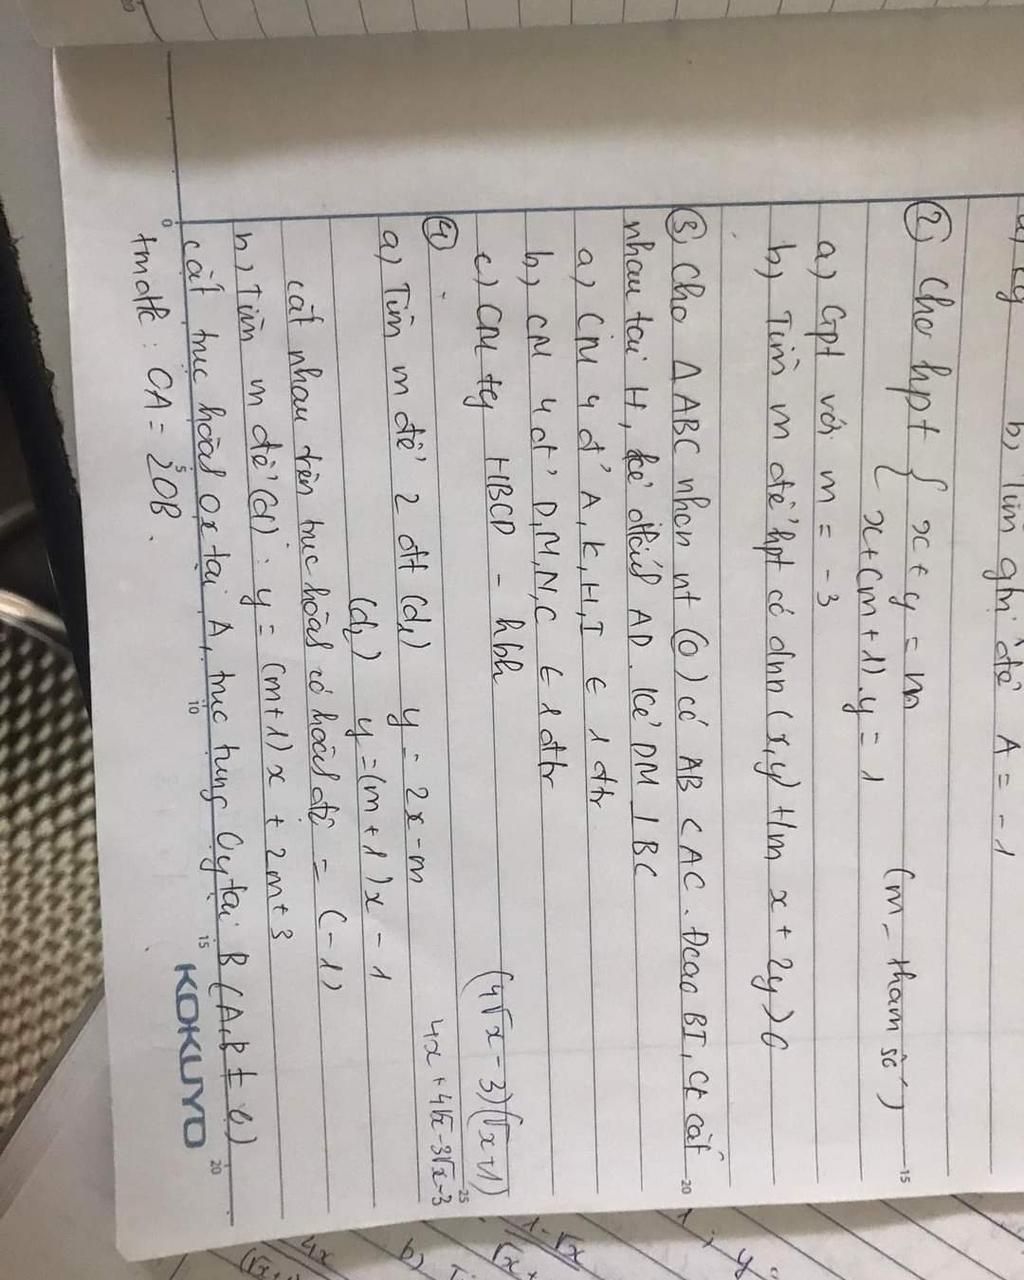 b) Tìm gtrị để A = -1
② Cho hpt { x + y = m
x + (m + 1).y = 1 (m - tham số)
a) Gpt với m = -3
b) Tìm m để hpt có dnn (x,y) t/m x + 2y > 0
③ Cho Δ ABC nhọn nt (O) có AB < AC. Đcao BI, CK cắt
nhau tại H, kẻ đkính AD. Kẻ DM ⊥ BC
a) CM 4 đ' A, K, H, I ∈ 1 đtr
b) CM 4 đ' D, M, N, C ∈ 1 đtr
c) CM tg HBCD - hbh
(4√x - 3)(√x + 1)
4x + 4√x - 3√x - 3
④
a) Tìm m để 2 đt (d₁) y = 2x - m
(d₂) y = (m + 1)x - 1
cắt nhau trên trục hoành có hoành độ = (-1)
b) Tìm m để (d): y = (m+1)x + 2m+3
cắt trục hoành Ox tại A, trục tung Oy tại B (A, B ≠ O)
tmđk: OA = 2OB.
0
5
10
15
20
KOKUYO
15
20
25